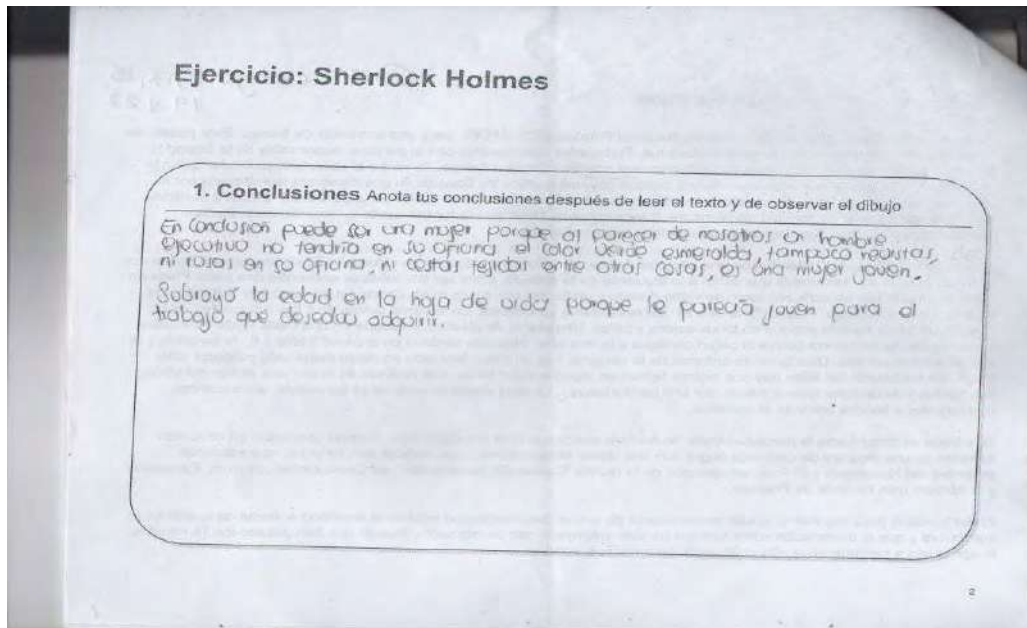 Ejercicio: Sherlock Holmes
1. Conclusiones Anota tus conclusiones después de leer el texto y de observar el dibujo
En Conclusion puede ser una mujer porque al parecer de nosotros un hombre
ejecutivo no tendría en su oficina el color verde esmeralda, tampoco revistas,
ni rosas en su oficina, ni cestas tejidas entre otras cosas, es una mujer joven.
Subrayó la edad en la hoja de vida porque le parecía joven para el
trabajo que deseaba adquirir.
2